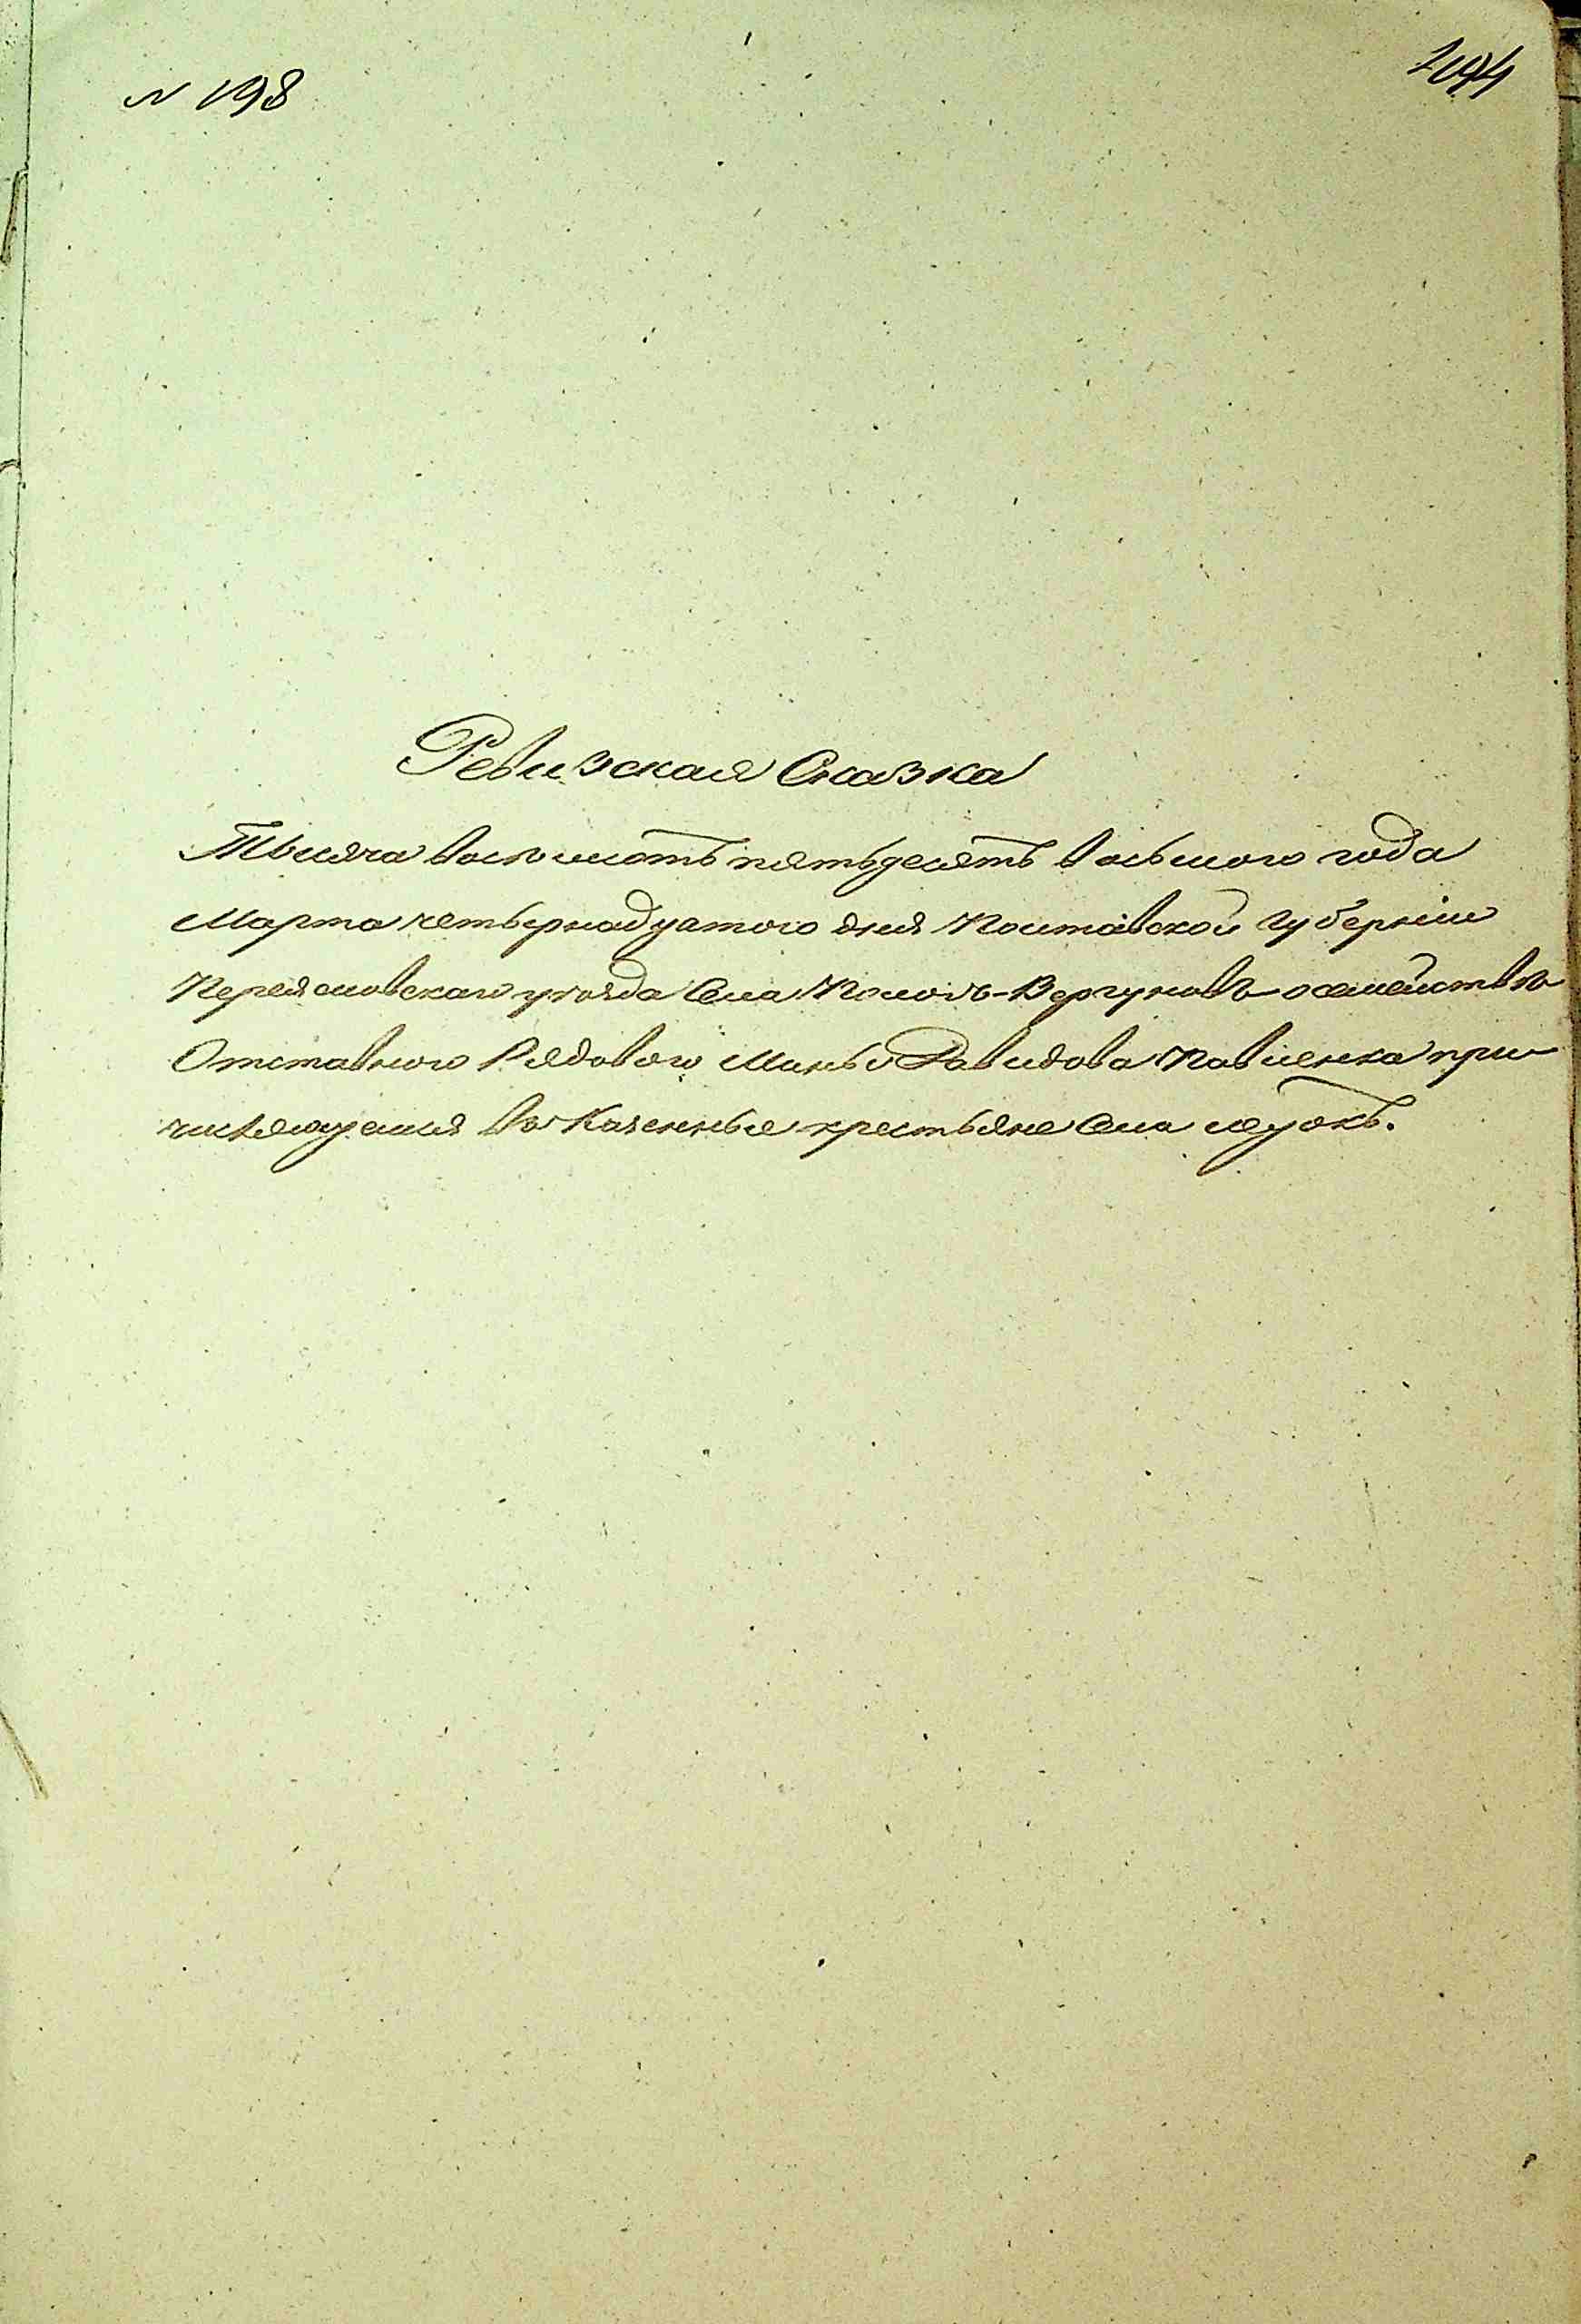 N 198
244
Ревизская Сказка
Тысяча восъмисотъ пятьдесятъ восьмого года
Марта четвернадцатого дня Полтавской Губерніи
Переясловскаго уѣзда Села Помокъ-Вергуновъ о семействѣ
Отставного Рядового Мины Давидова Павленка при
числяющемся въ Казенные крестьяне Села